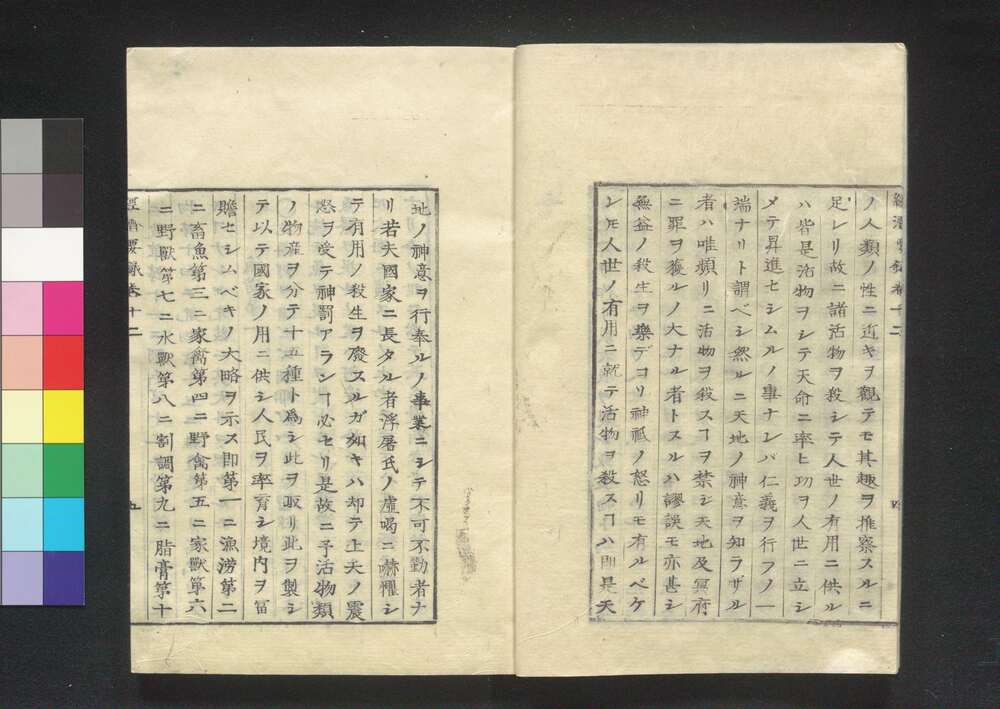 經濟要錄卷十二
ノ人類ノ性ニ近キヲ觀テモ其趣ヲ推察スルニ
足レリ故ニ諸活物ヲ殺シテ人世ノ有用ニ供ル
ハ皆是活物ヲシテ天命ニ率ヒ功ヲ人世ニ立シ
メテ昇進セシムルノ事ナレバ仁義ヲ行フノ一
端ナリト謂ベシ然ルニ天地ノ神意ヲ知ラザル
者ハ唯頻リニ活物ヲ殺スヿヲ禁シ天地及冥府
ニ罪ヲ獲ルノ大ナル者トスルハ謬誤モ亦甚シ
無益ノ殺生ヲ樂デコリ神祇ノ怒リモ有ルベケ
レ𪜈人世ノ有用ニ就テ活物ヲ殺スヿハ即是天
地ノ神意ヲ行奉ルノ事業ニシテ不可不勤者ナ
リ若夫國家ニ長タル者浮屠氏ノ虛喝ニ嚇懼シ
テ有用ノ殺生ヲ廢スルガ如キハ却テ上天ノ震
怒ヲ受テ神罰アランヿ必セリ是故ニ予活物類
ノ物産ヲ分テ十五種ト爲シ此ヲ取リ此ヲ製シ
テ以テ國家ノ用ニ供シ人民ヲ率育シ境内ヲ富
贍セシムベキノ大略ヲ示ス即第一ニ漁澇第二
ニ畜魚第三ニ家禽第四ニ野禽第五ニ家獸第六
ニ野獸第七ニ水獸第八ニ割調第九ニ脂膏第十
經濟要錄卷十二
五